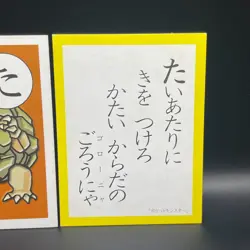 た
たいあたりに
きを つけろ
かたい からだの
ごろうにゃ
ゴローニャ